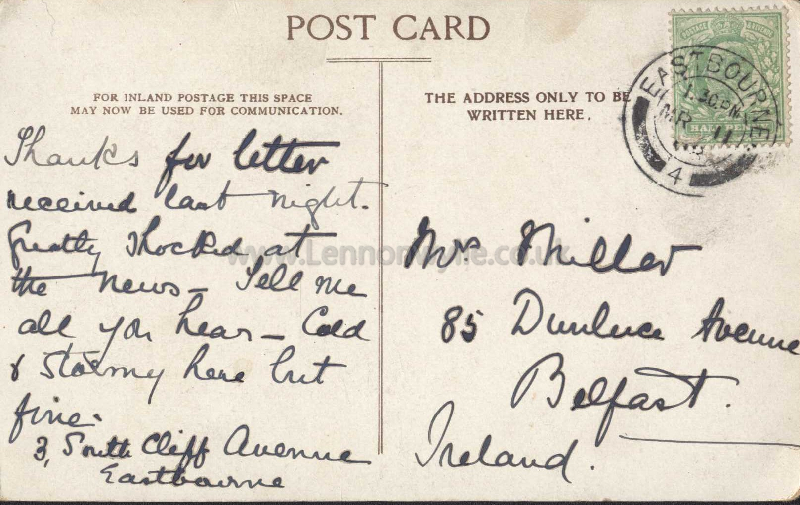 POST CARD
FOR INLAND POSTAGE THIS SPACE
MAY NOW BE USED FOR COMMUNICATION.
THE ADDRESS ONLY TO BE
WRITTEN HERE.
EASTBOURNE
1.30 PM
MR 11
4
Thanks for letter
received last night.
Greatly shocked at
the news - Tell me
all you hear - Cold
& Stormy here but
fine.
3, South Cliff Avenue
Eastbourne
Mrs Miller
85 Dunluce Avenue
Belfast.
Ireland.
www.Lennonwylie.co.uk